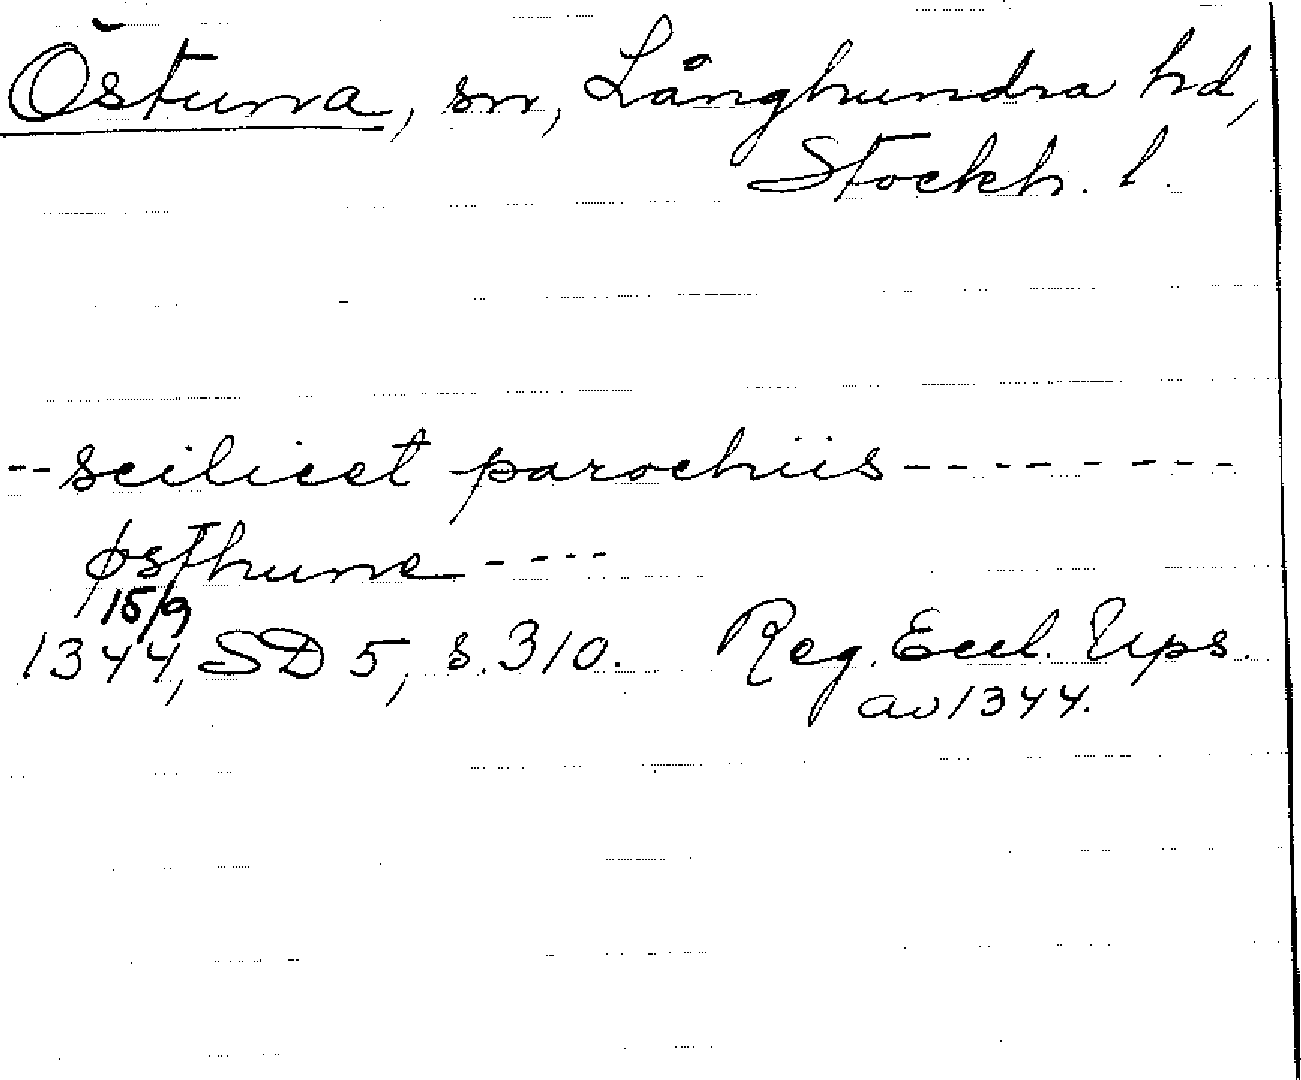 Östuna, sn, Långhundra hd,
Stockh. l.
-- scilicet parochiis --------
østhuna ----
15/9
1344, SD 5, s. 310. Reg. Eccl. Ups.
av 1344.